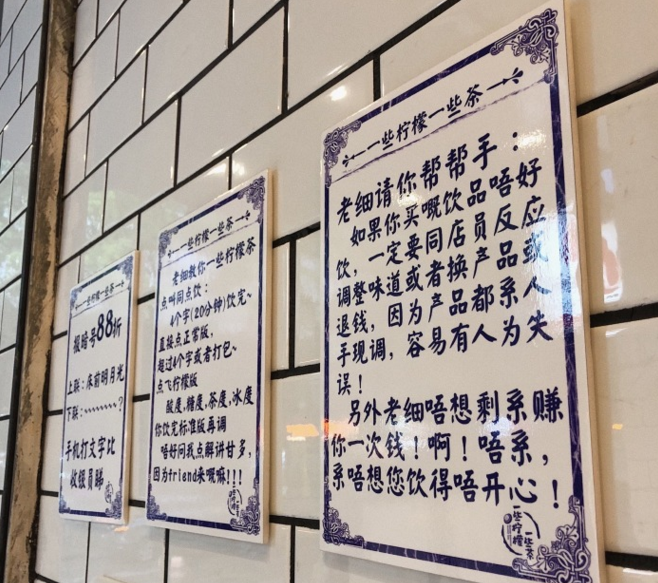 一些柠檬一些茶
报暗号88折
上联：床前明月光
下联：~~~~~~~？
手机打文字比
收银员睇
一些柠檬一些茶
老细教你一些柠檬茶
点叫同点饮：
4个字(20分钟)饮完~
直接点正常版，
超过4个字或者打包~
点飞柠檬版
酸度，糖度，茶度，冰度
你饮完标准版再调
唔好问我点解讲甘多，
因为friend来嘅嘛！！！
一些柠檬一些茶
老细请你帮帮手：
如果你买嘅饮品唔好
饮，一定要同店员反应
调整味道或者换产品或
退钱，因为产品都系人
手现调，容易有人为失
误！
另外老细唔想剩系赚
你一次钱！啊！唔系，
系唔想您饮得唔开心！
一些柠檬
一些茶